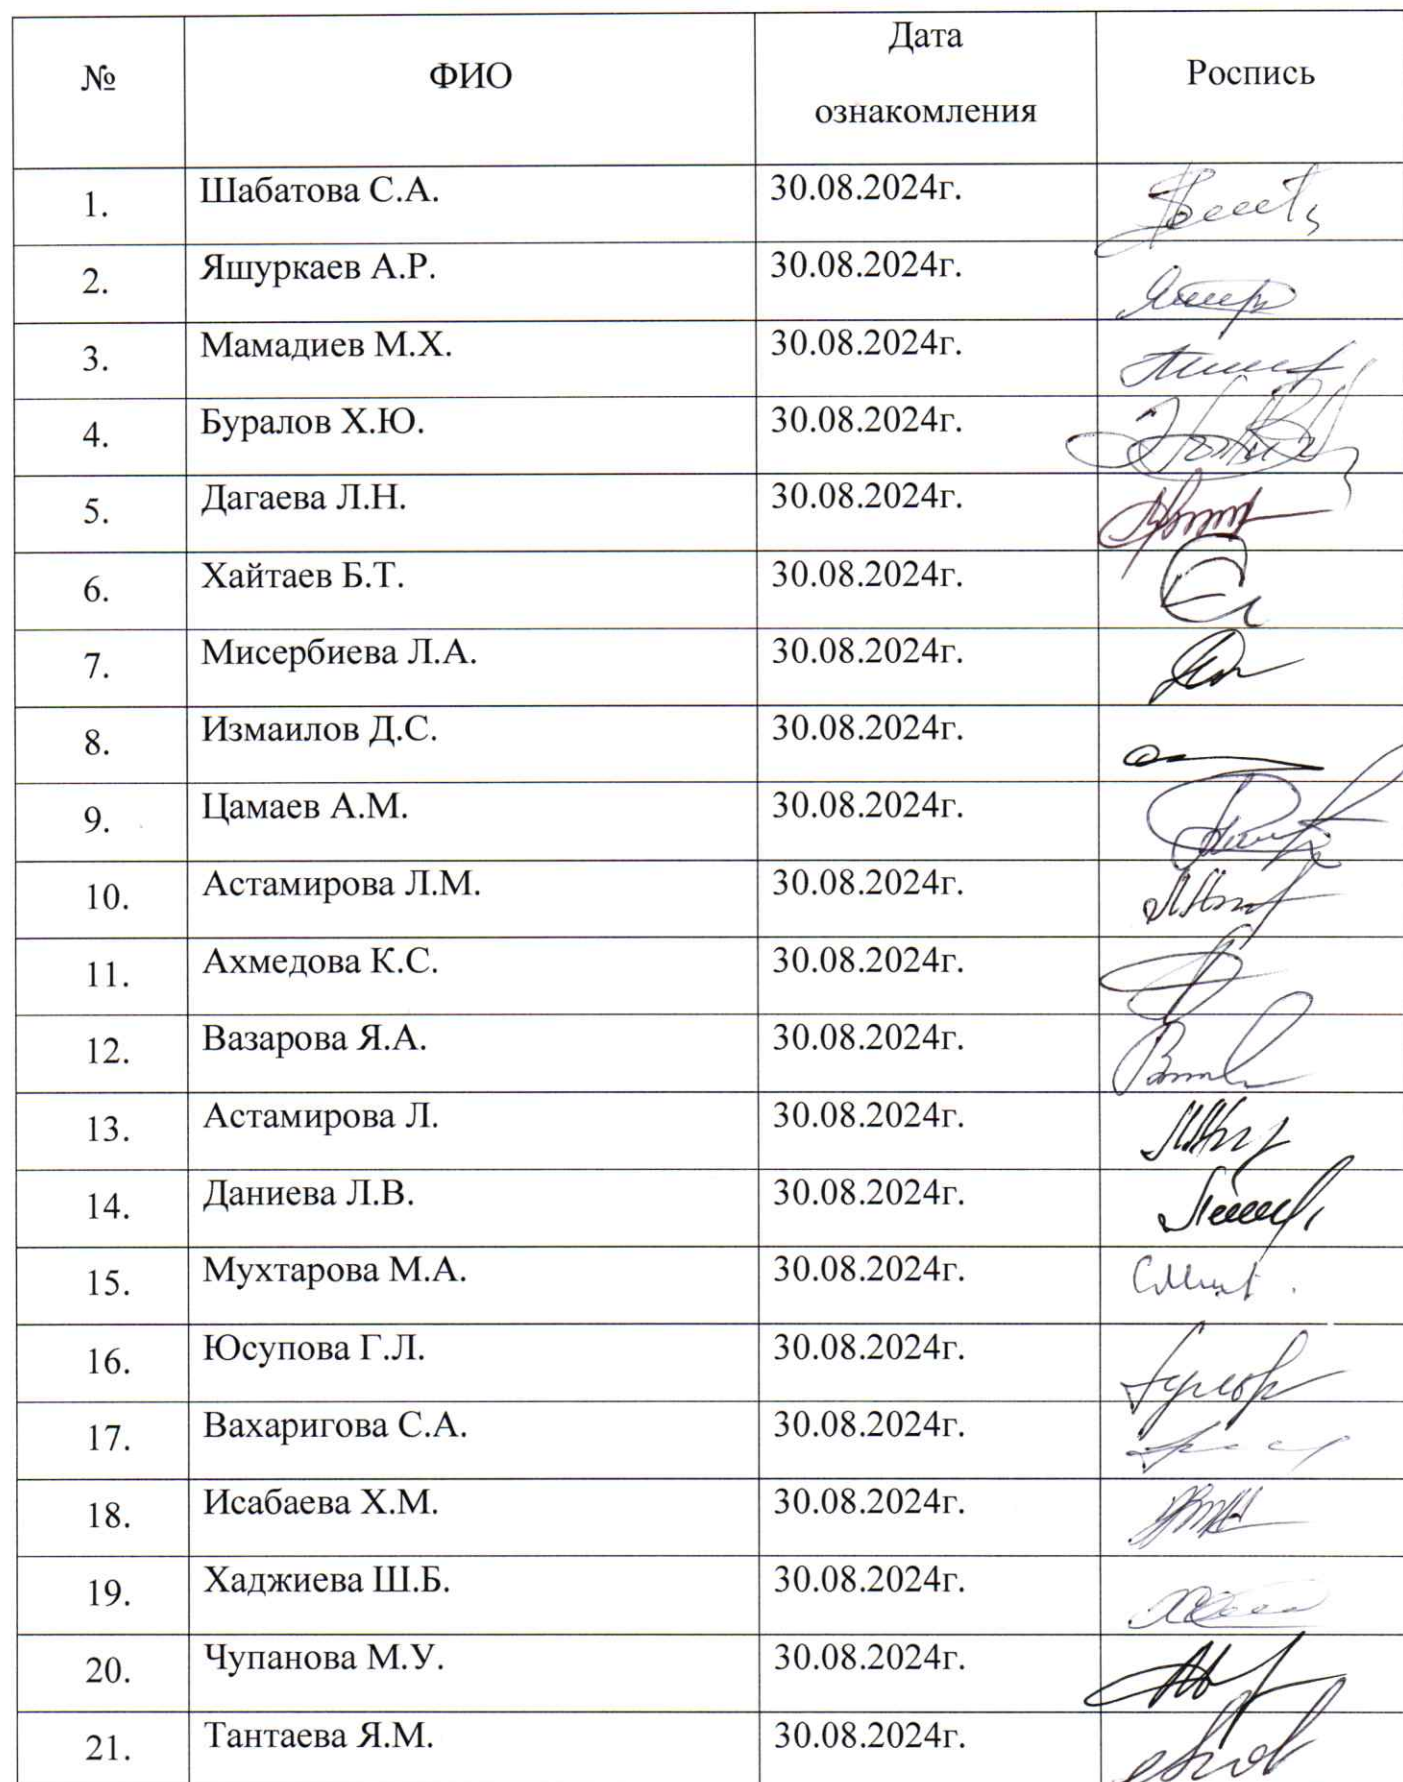 № ФИО Дата ознакомления Роспись
1. Шабатова С.А. 30.08.2024г.
2. Яшуркаев А.Р. 30.08.2024г.
3. Мамадиев М.Х. 30.08.2024г.
4. Буралов Х.Ю. 30.08.2024г.
5. Дагаева Л.Н. 30.08.2024г.
6. Хайтаев Б.Т. 30.08.2024г.
7. Мисербиева Л.А. 30.08.2024г.
8. Измаилов Д.С. 30.08.2024г.
9. Цамаев А.М. 30.08.2024г.
10. Астамирова Л.М. 30.08.2024г.
11. Ахмедова К.С. 30.08.2024г.
12. Вазарова Я.А. 30.08.2024г.
13. Астамирова Л. 30.08.2024г.
14. Даниева Л.В. 30.08.2024г.
15. Мухтарова М.А. 30.08.2024г.
16. Юсупова Г.Л. 30.08.2024г.
17. Вахаригова С.А. 30.08.2024г.
18. Исабаева Х.М. 30.08.2024г.
19. Хаджиева Ш.Б. 30.08.2024г.
20. Чупанова М.У. 30.08.2024г.
21. Тантаева Я.М. 30.08.2024г.